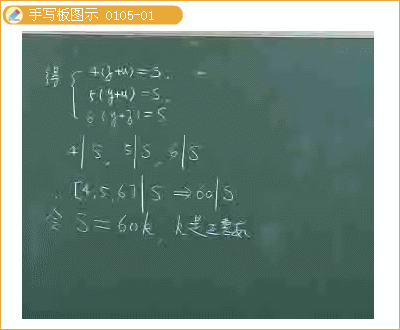 手写板图示 0105-01
得 { 4(z+u)=S.
5(y+u)=S.
6(y+z)=S
4|S, 5|S, 6|S
∴ [4,5,6]|S ⇒60|S
令 S=60k, k是正整数